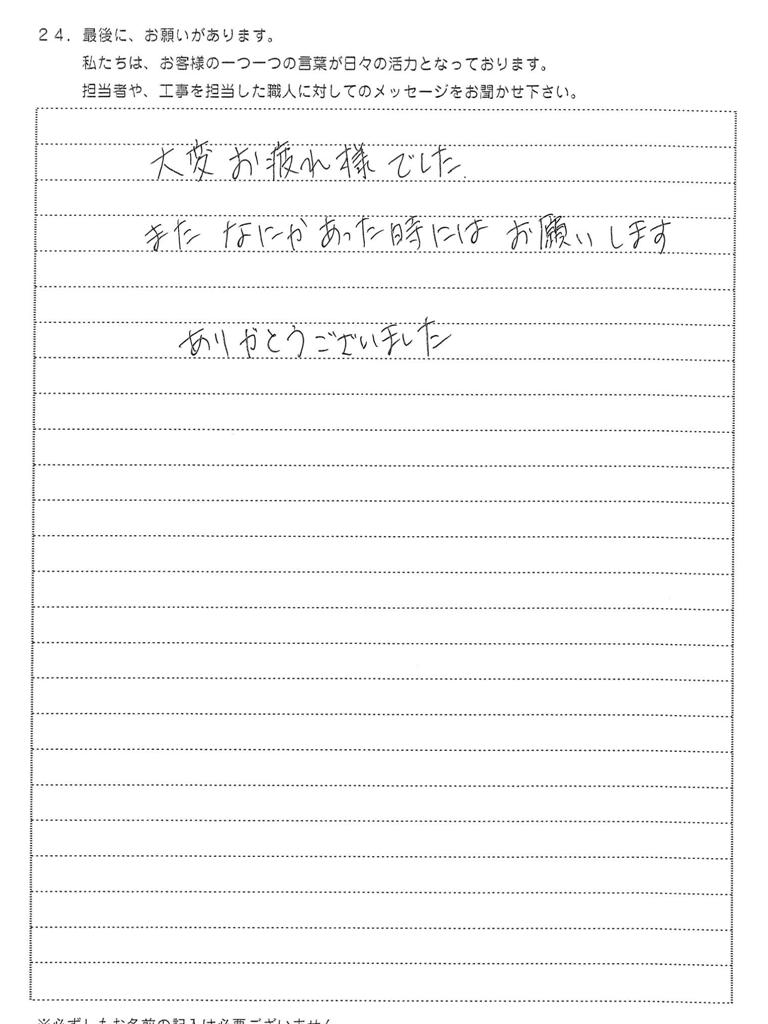 ２４．最後に、お願いがあります。
私たちは、お客様の一つ一つの言葉が日々の活力となっております。
担当者や、工事を担当した職人に対してのメッセージをお聞かせ下さい。
大変お疲れ様でした.
また なにかあった時には お願いします
ありがとうございました
※必ずしもお名前の記入は必要ございません